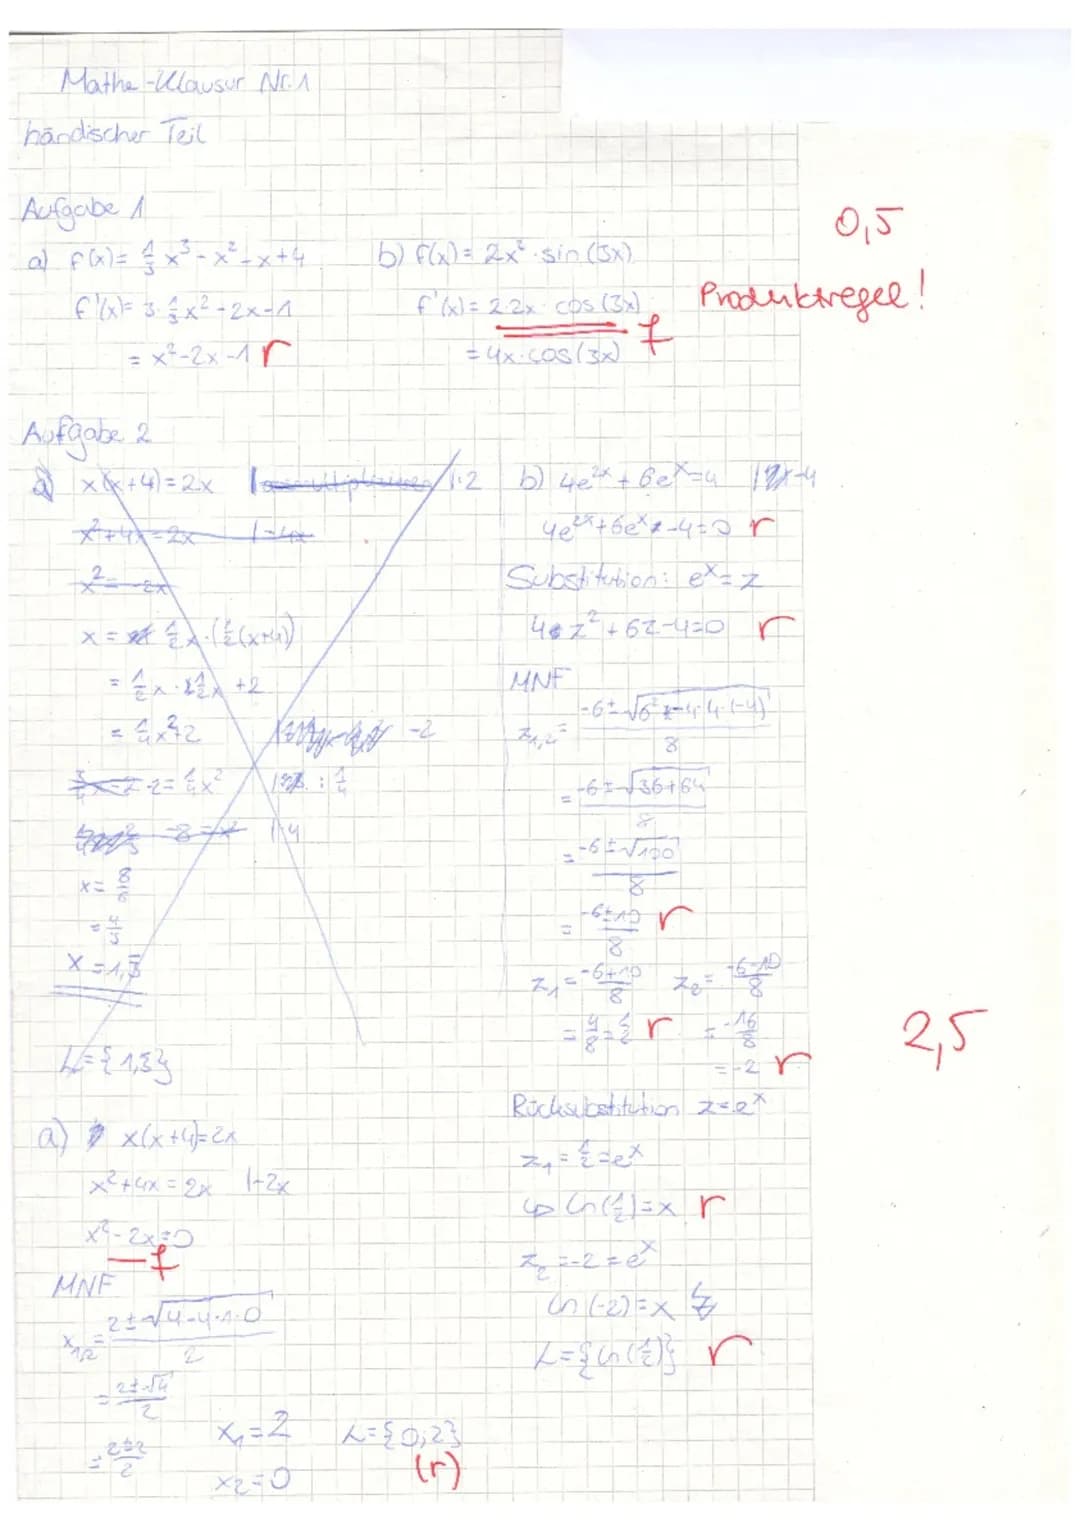 Mathe-Klausur Nr.1
händischer Teil
Aufgabe 1
0,5
a) f(x)= 1/3 x³-x²-x+4
f'(x)= 3·1/3x²-2x-1
= x²-2x-1 r
b) f(x)= 2x²·sin(3x)
f'(x)= 2·2x·cos(3x) f
Produktregel!
= 4x·cos(3x)
Aufgabe 2
a) x(x+4)=2x |:2
x²+4x=2x |-4x
x²=-2x
x = 1/2x·(1/2(x+4))
= 1/2x·1/2x+2
= 1/4x²+2 -2
-2=1/4x² |:1/4
-8=x² |:4
x= 8/6
= 4/3
x=1,3
L={1,3}
a) x(x+4)=2x
x²+4x=2x |-2x
x²-2x=0
f
MNF
x1/2= 2±√4-4·1·0 / 2
= 2±√4 / 2
= 2±2 / 2
x1=2
x2=0
L={0;2}
(r)
b) 4e^2x+6e^x=4 |-4
4e^2x+6e^x-4=0 r
Substitution: e^x=z
4z²+6z-4=0 r
MNF
z1,2= -6±√6²-4·4·(-4) / 8
= -6±√36+64 / 8
= -6±√100 / 8
= -6±10 / 8 r
z1= -6+10 / 8 z2= -6-10 / 8
= 4/8=1/2 r = -16/8
=-2 r
2,5
Rücksubstitution z=e^x
z1=1/2=e^x
↳ ln(1/2)=x r
z2=-2=e^x
ln(-2)=x ↯
L={ln(1/2)} r